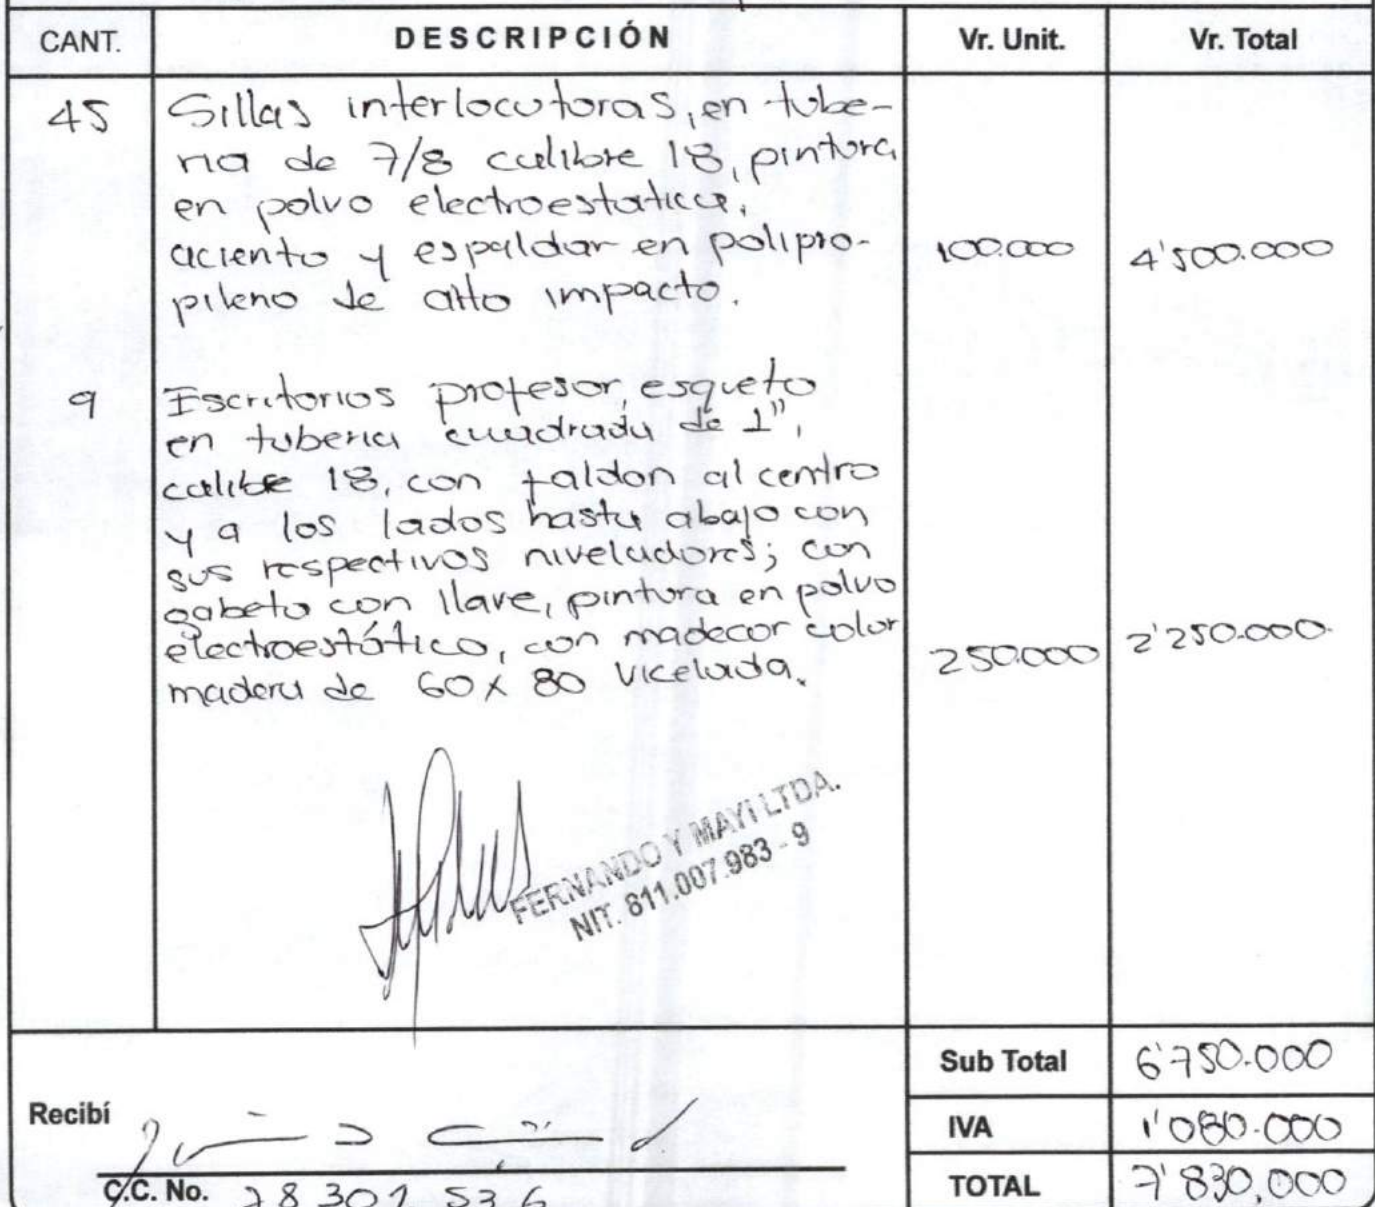 CANT. DESCRIPCIÓN Vr. Unit. Vr. Total
45 Sillas interlocutoras, en tube-
ria de 7/8 calibre 18, pintura
en polvo electroestatica,
aciento y espaldar en polipro- 100.000 4'500.000
pileno de alto impacto.
9 Escritorios profesor, esqueto
en tuberia cuadrada de 1",
calibre 18, con faldon al centro
y a los lados hasta abajo con
sus respectivos niveladores; con
gabeto con llave, pintura en polvo
electroestático, con madecor color 250.000 2'250.000
madera de 60 x 80 vicelada.
FERNANDO Y MAYI LTDA.
NIT. 811.007.983 - 9
Sub Total 6'750.000
Recibí
IVA 1'080.000
C.C. No. 78301536
TOTAL 7'830.000